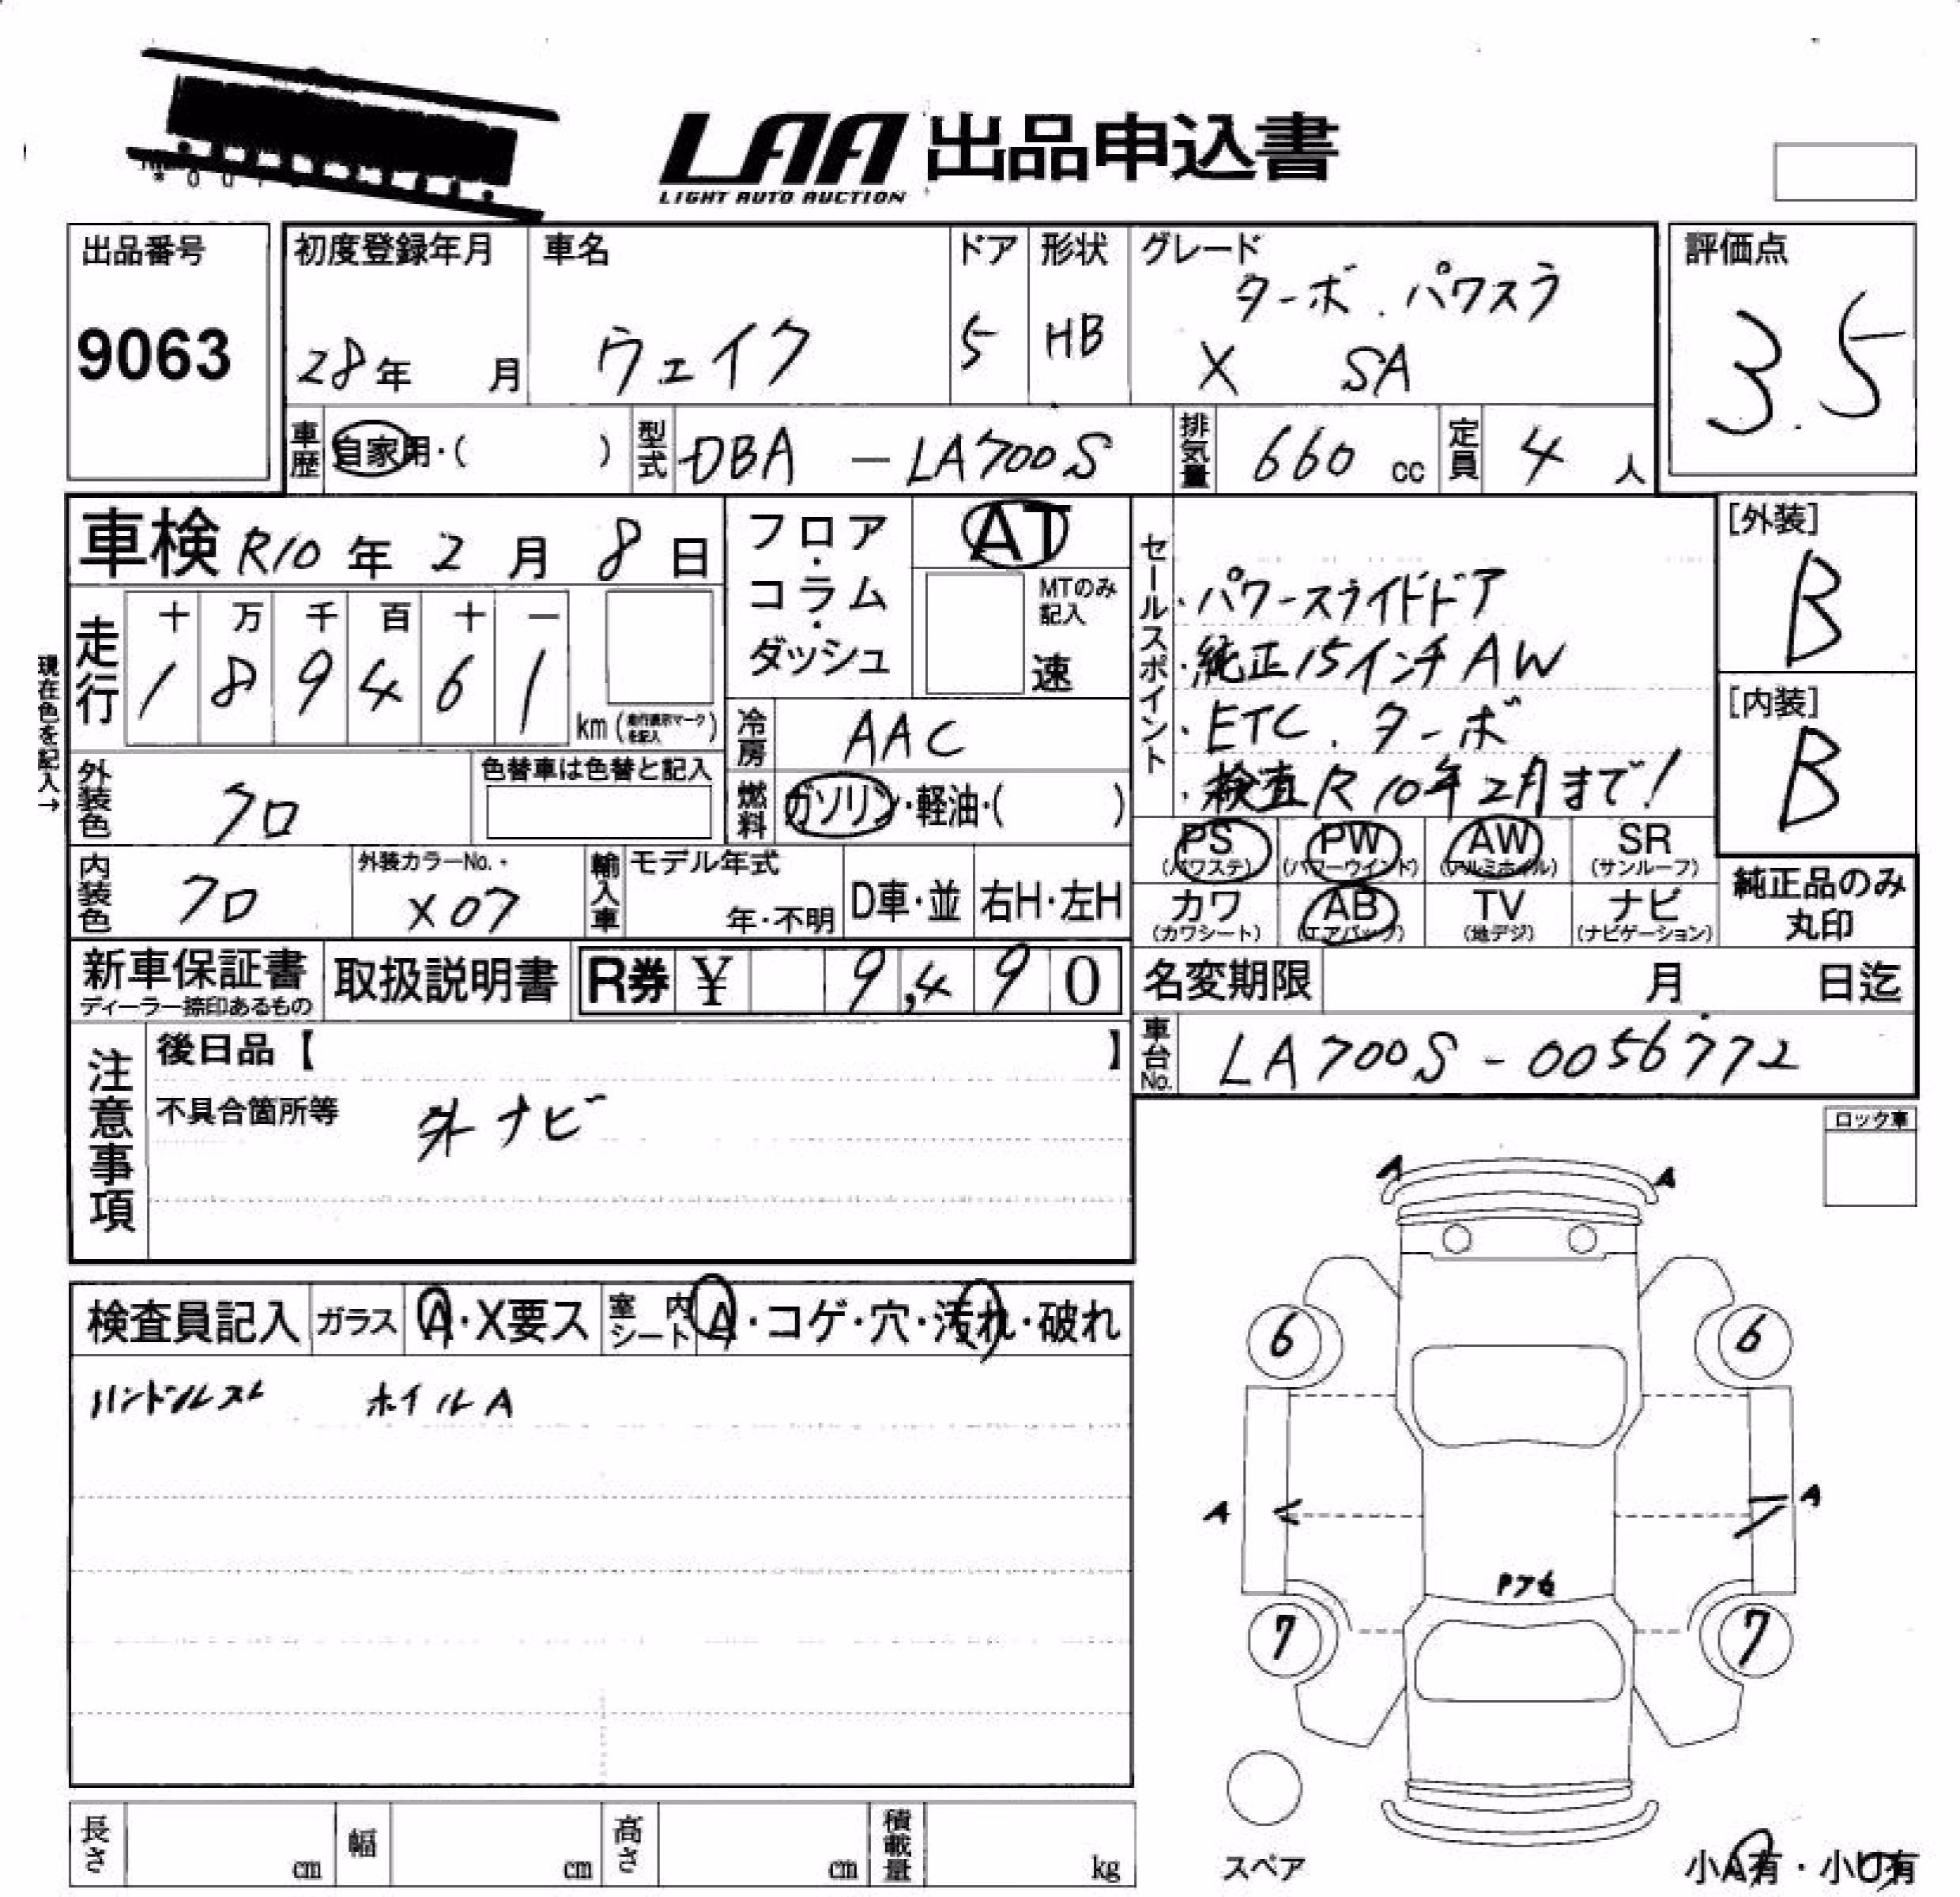 LAA 出品申込書
LIGHT AUTO AUCTION
出品番号
9063
初度登録年月
28年 月
車名
ウェイク
ドア
5
形状
HB
グレード
ターボ.パワスラ
X SA
評価点
3.5
車歴 自家用・( )
型式 DBA-LA700S
排気量 660 cc
定員 4 人
車検 R10年2月8日
フロア・コラム・ダッシュ
AT
MTのみ記入
速
走行
十 万 千 百 十 一
1 8 9 4 6 1
km(走行表示マークを記入)
現在色を記入→
冷房 AAC
外装色 クロ
色替車は色替と記入
燃料 ガソリン・軽油・( )
内装色 クロ
外装カラーNo.
X07
輸入車
モデル年式
年・不明
D車・並
右H・左H
セールスポイント
・パワースライドドア
・純正15インチAW
・ETC.ターボ
・検査R10年2月まで!
[外装]
B
[内装]
B
PS PW AW SR
(パワステ) (パワーウインド) (アルミホイル) (サンルーフ)
カワ AB TV ナビ
(カワシート) (エアバッグ) (地デジ) (ナビゲーション)
純正品のみ
丸印
新車保証書
ディーラー捺印あるもの
取扱説明書
R券 ¥ 9,490
名変期限 月 日迄
車台No. LA700S-0056772
注意事項
後日品【 】
不具合箇所等 外ナビ
ロック車
検査員記入 ガラス A・X要ス 室内シート A・コゲ・穴・汚れ・破れ
ハンドルスレ ホイルA
A A
6 6
A A
7 7
スペア
小A有・小U有
長さ cm 幅 cm 高さ cm 積載量 kg